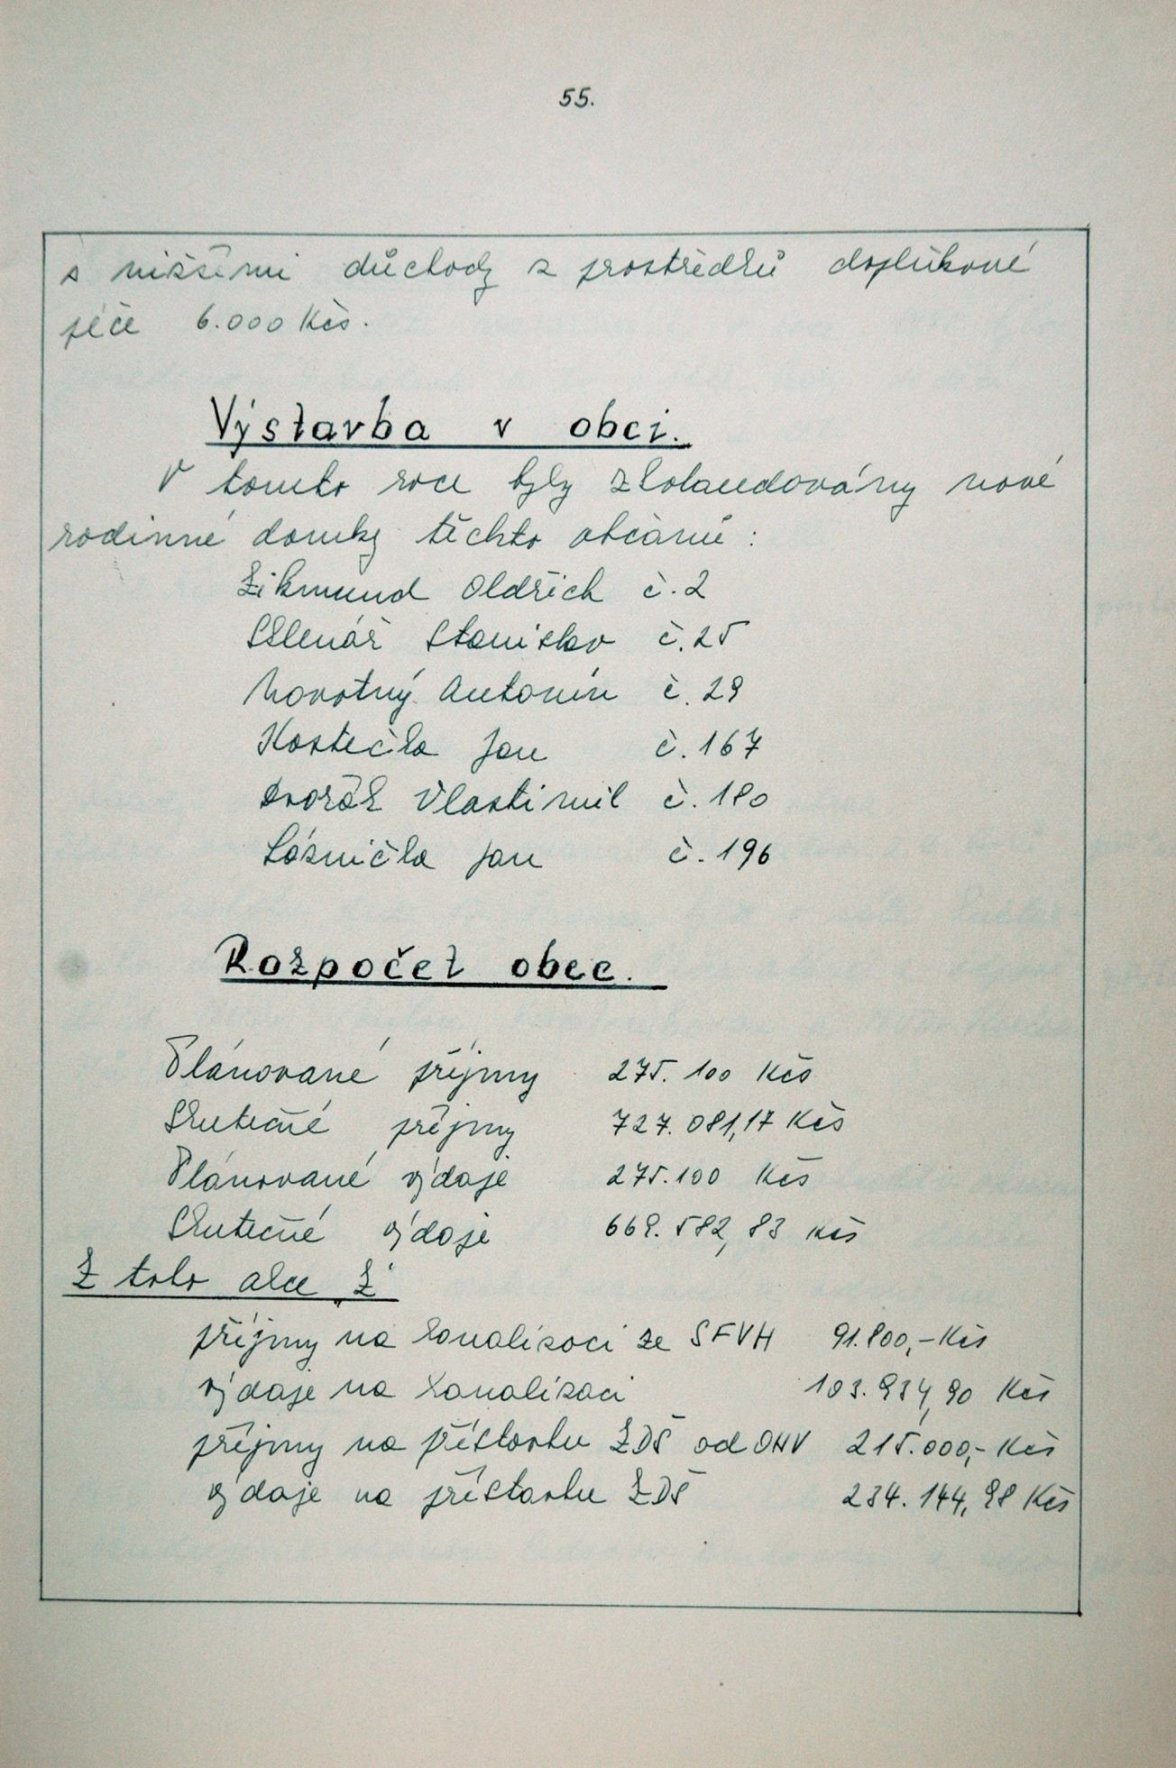 55.
s nižšími důchody z prostředků doplňkové
péče 6.000 Kčs.
Výstavba v obci.
V tomto roce byly zkolaudovány nové
rodinné domky těchto občanů :
Zikmund Oldřich č. 2
Sklenář Stanislav č. 25
Novotný Antonín č. 29
Kostečka Jan č. 167
Dvořák Vlastimil č. 180
Láznička Jan č. 196
Rozpočet obce.
Plánované příjmy 275. 100 Kčs
Skutečné příjmy 727. 081,17 Kčs
Plánované výdaje 275.100 Kčs
Skutečné výdaje 669. 582, 83 Kčs
Z toho akce „Z"
příjmy na kanalizaci ze SFVH 91.800,- Kčs
výdaje na kanalizaci 103. 934, 90 Kčs
příjmy na přístavbu ZDŠ od ONV 215.000,- Kčs
výdaje na přístavbu ZDŠ 234. 144, 98 Kčs